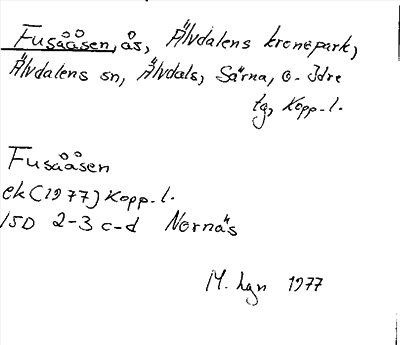 Fusååsen, ås, Älvdalens kronopark,
Älvdalens sn, Älvdals, Särna, o. Idre
tg, Kopp. l.
Fusååsen
ek (1977) Kopp. l.
15D 2-3 c-d Nornäs
M. hgn 1977